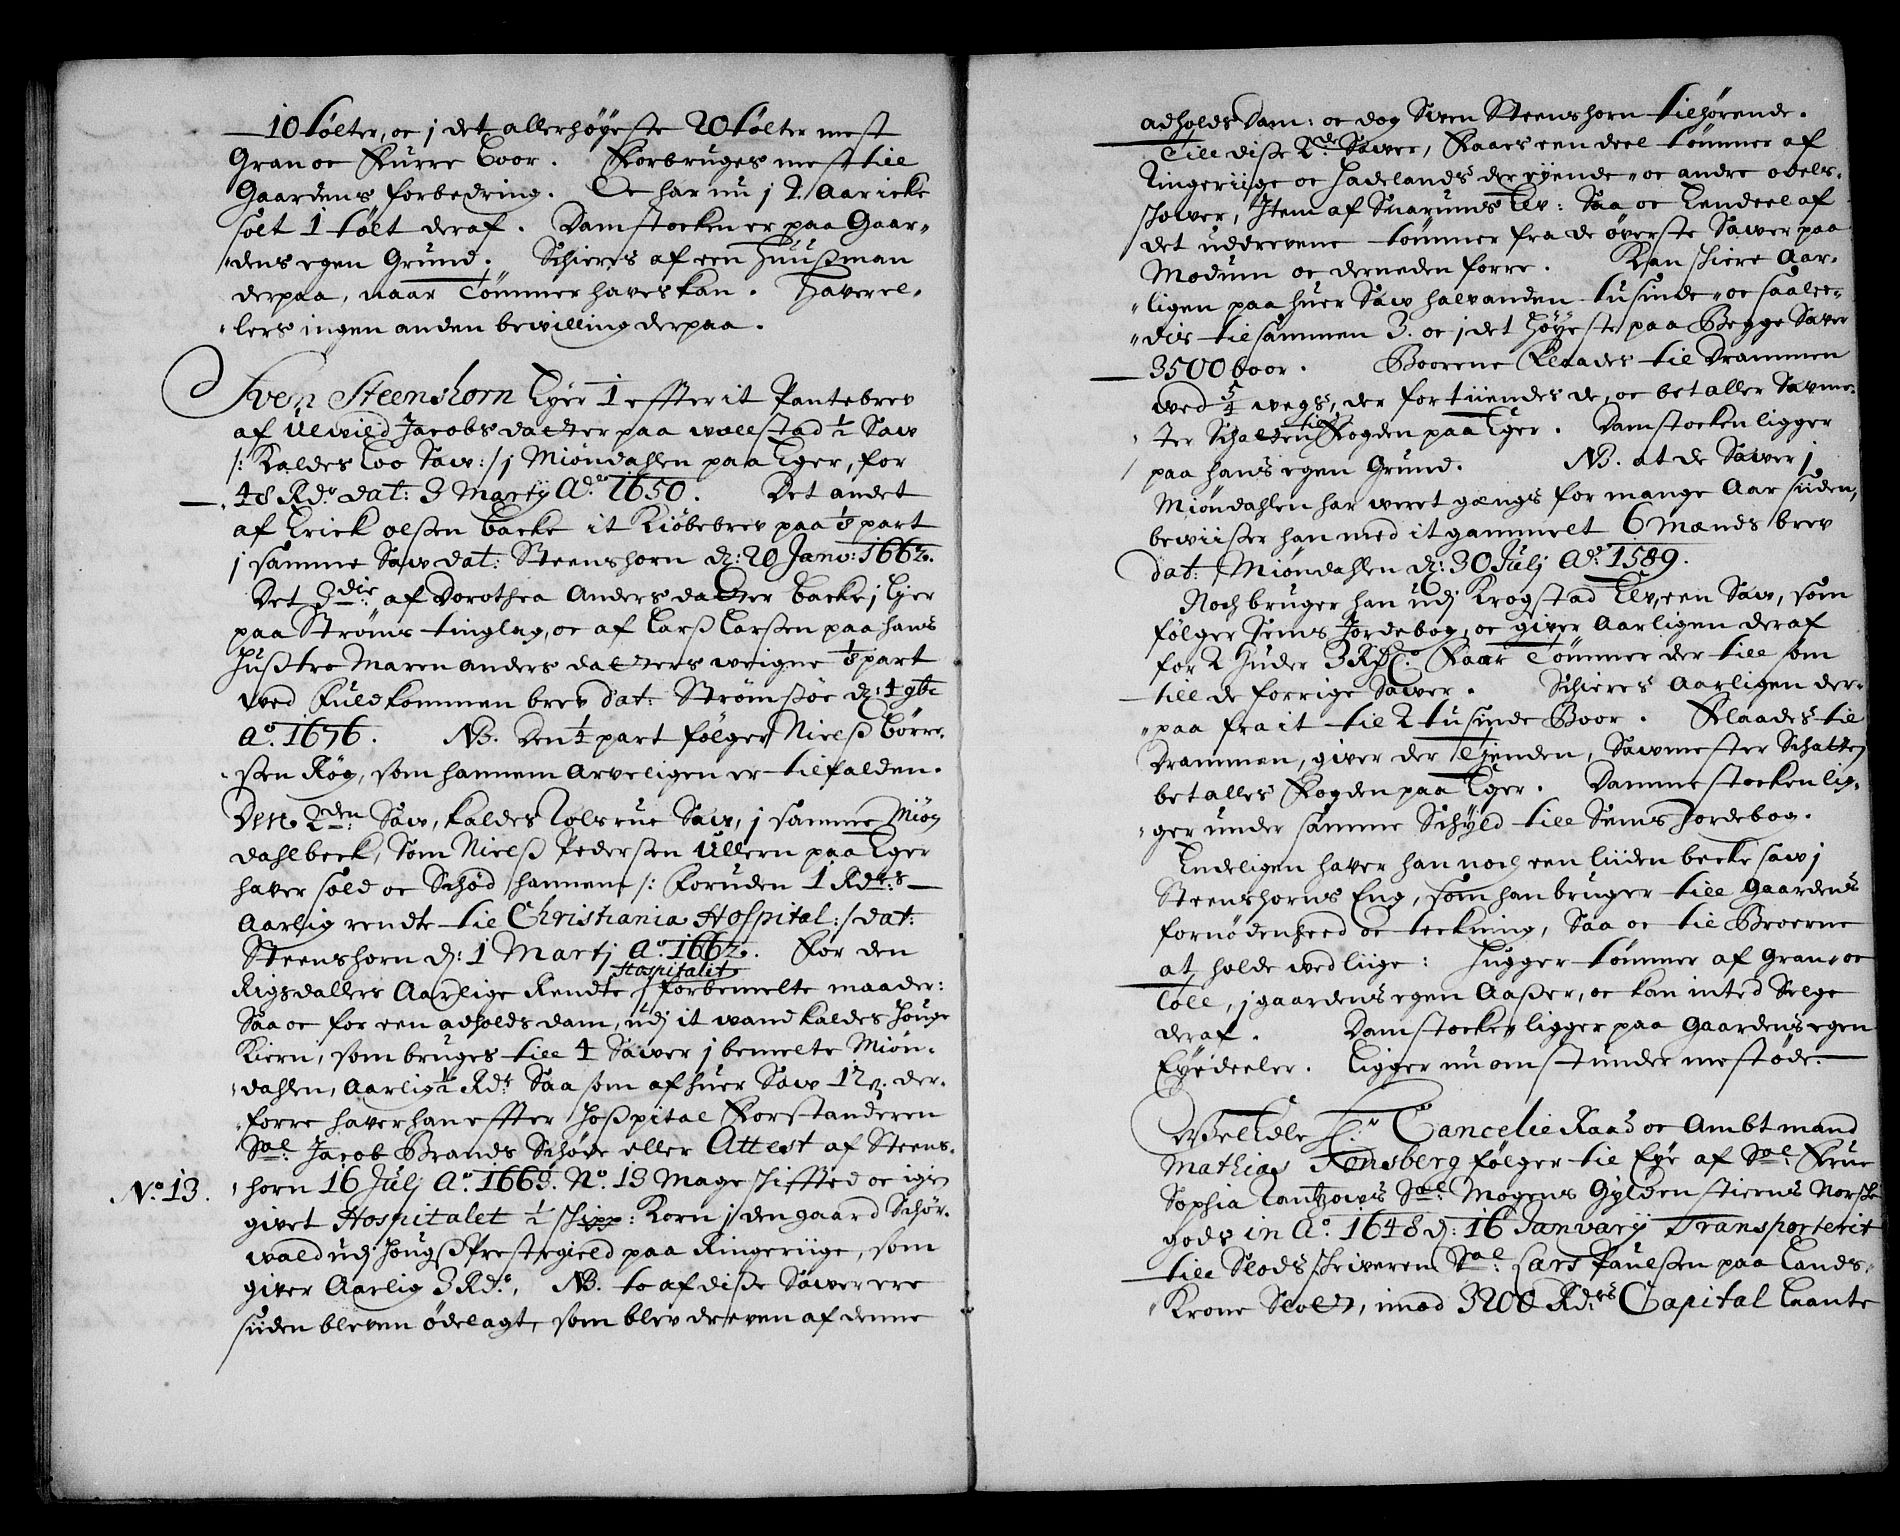 10 tolter, oc j det allerhøyeste 20 tolter mest
Gran oc Furre boor. Forbruges mest till
Gaardens forbedring. Oc har nu j 2 Aar icke
solt 1 tolt deraf. Damstocken er paa Gaar„
„dens egen Grund. Schieres af een Huußman
derpaa, naar Tømmer haves kan. Haver el„
„lers ingen anden bevilling derpaa.
Sven Steenshorn Eyer 1 effter it Pantebrev
af Ulvild Jacobsdatter paa Wallestad ½ Saw
/: Kaldes Loo Saw :/ j Miøndahlen paa Eger, for
48 Rdr dat: 3 Martij Ao 1650. Det andet
af Erick olsßen backe it Kiøbebrev paa ⅛ part
j samme Saw dat: Steenshorn d: 20 Janv: 1662.
Det 3die af Dorothea Anders datter backe j Eger
paa Strøms tinglag, oc af Larß Larßen paa hans
Hußtro Maren anders datters weigne ⅛ part
wed Fuldkommen brev dat: Strømsøe d: 4 9bc
Ao. 1676. NB. Den ¼ part følger Nielß Børre„
„sen Røg, som hannem Arveligen er tilfalden.
Den 2den Saw, kaldes Tolsrue Saw, j samme Miøn
dahlbeck, Som Nielß Pedersen Ullern paa Eger
haver sold oc Schød hannem /: Foruden 1 Rdrs
Aarlig rendte til Christiania Hospital :/ dat:
Steenshorn d: 1 Martj Ao. 1662. For den
Hospitalit
Rigsdallers Aarlige Rendte j forbemelte maader:
Saa oc for een adholds dam, udj it wand kaldes Houge
Kiern, som bruges till 4 Sawer j bemelte Miøn„
„dahlen, Aarlig ½ Rdr Saa som af huer Saw 12 s. der„
„forre haver han effter Hoßpital Forstanderen
Sal: Jacob Brands Schøde eller Attest af Steens„
No. 13. „horn 16 Julj Ao. 1669. No. 13 Mageschifftted oc igien
givet Hospitalet ½ schipp: Korn j den gaard Schør„
wald udj Hougß Prestegield paa Ringeriige, som
giver Aarlig 3 Rdr. NB. to af diße Sawer ere
siiden bleven ødelagt, som blev dreven af denne
adholds Dam: oc dog Sven Steenshorn tilhørende.
Till diße 2de Sawer, Faaes een deel tømmer af
Ringeriige oc Hadelands der eyende „oc andre odels„
schower, Item af Snarums Elv: Saa oc Eendeel af
det uddrevene tømmer fra de øverste Sawer paa
Modum oc derneden forre. Kan schiere Aar„
„ligen paa huer Saw halvanden tusinde „oc saalee„
„dis tilsammen 3. oc j det høyeste paa Begge Sawer
3500 boor. Boorene Flaades til Drammen
wed 5/4 wegs, der fortiiendes de, oc betaller Sawme„
„ster Schatten til Fogden paa Eger. Damstocken ligger
paa hans egen Grund. NB. at de Sawer j
Miøndahlen har weret gengs for mange Aar siiden,
bewiißer han med it gammelt 6 Mænds brev
dat: Miøndahlen d: 30 Julj Ao. 1589.
Noch bruger han udj Krogstad Elv, een Saw, som
følger Sems Jordebog, oc giver Aarligen deraf
for 2 Huder 3 Rdr. Faar Tømmer der till som
till de forrige Sawer. Schieres Aarligen der„
„paa fra it til 2 tusinde Boor. Flaades til
Drammen, giver der Tiienden, Sawmester Schatten
betalles Fogden paa Eger. Damme stocken lig„
„ger under samme Schyld till Sems Jordebog.
Endeligen haver han noch een liiden becke saw j
Steenshorns Eng, som han bruger till Gaardens
fornødenheed oc teckning, Saa oc til Broerne
at holde wedliige: Hugger tømmer af Gran „oc
Toll, j gaardens egen Aaßer, oc kan inted Selge
deraf. Damstocken ligger paa Gaardens egen
Eyedeeler. Ligger nu omstunder mest øde.
Welædle Hr. Cancelie Raad oc Ambtmand
Mathias Tonsberg følger til Eye af Sal: Frue
Sophia Lantzows Sal: Mogens Gyldenstierns Norsche
gods in Ao. 1648 d: 16 Janvarij Transporterit
till Slodsschriveren Sal Lars Paulßen paa Lands„
„Krone Slott, imod 3200 Rdrs Capital Laante